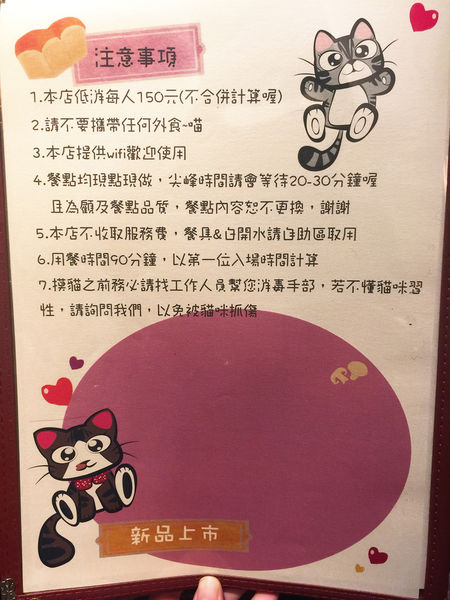 注意事項
1.本店低消每人150元(不合併計算喔)
2.請不要攜帶任何外食~喵
3.本店提供wifi歡迎使用
4.餐點均現點現做，尖峰時間請會等待20-30分鐘喔
且為顧及餐點品質，餐點內容恕不更換，謝謝
5.本店不收取服務費，餐具&白開水請自助區取用
6.用餐時間90分鐘，以第一位入場時間計算
7.摸貓之前務必請找工作人員幫您消毒手部，若不懂貓咪習
性，請詢問我們，以免被貓咪抓傷
新品上市